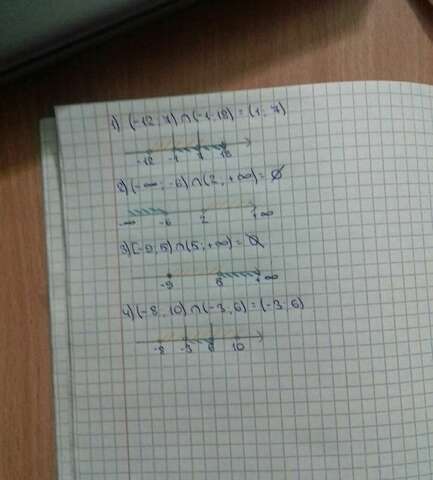 1) (-12; 7) ∩ (-1; 18) = (1; 7)
-12 -1 7 18
2) (-∞; -6) ∩ (2; +∞) = ∅
-∞ -6 2 +∞
3) [-9; 5) ∩ (5; +∞) = ∅
-9 5 +∞
4) (-8; 10) ∩ (-3; 6) = (-3; 6)
-8 -3 6 10